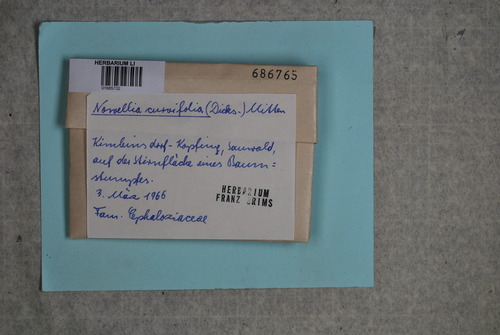 HERBARIUM LI
686765
Nowellia curvifolia (Dicks.) Mitten
Kopfing, Sauwald,
auf der Stirnfläche eines Baum=
stumpfes.
3. März 1966
HERBARIUM
FRANZ GRIMS
Fam. Cephaloziaceae